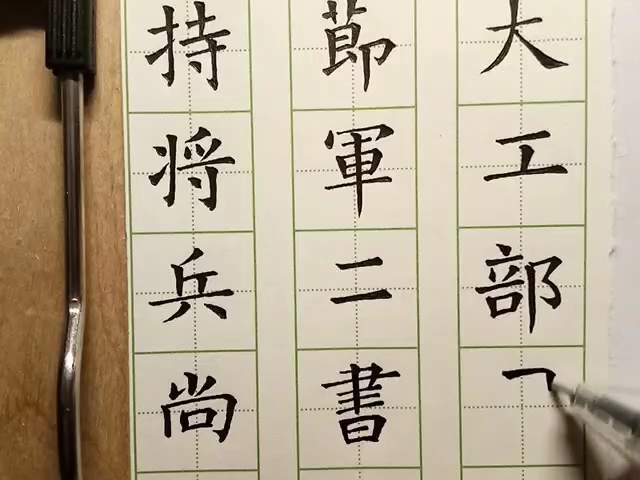 大工部
節軍二書
持将兵尚